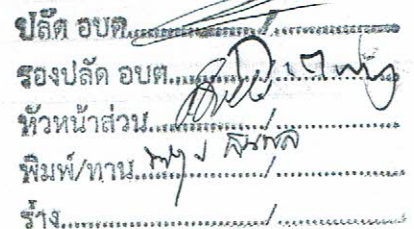 ปลัด อบต..................../....................
รองปลัด อบต..................../....................
หัวหน้าส่วน..................../....................
พิมพ์/ทาน..................../....................
ร่าง..................../....................